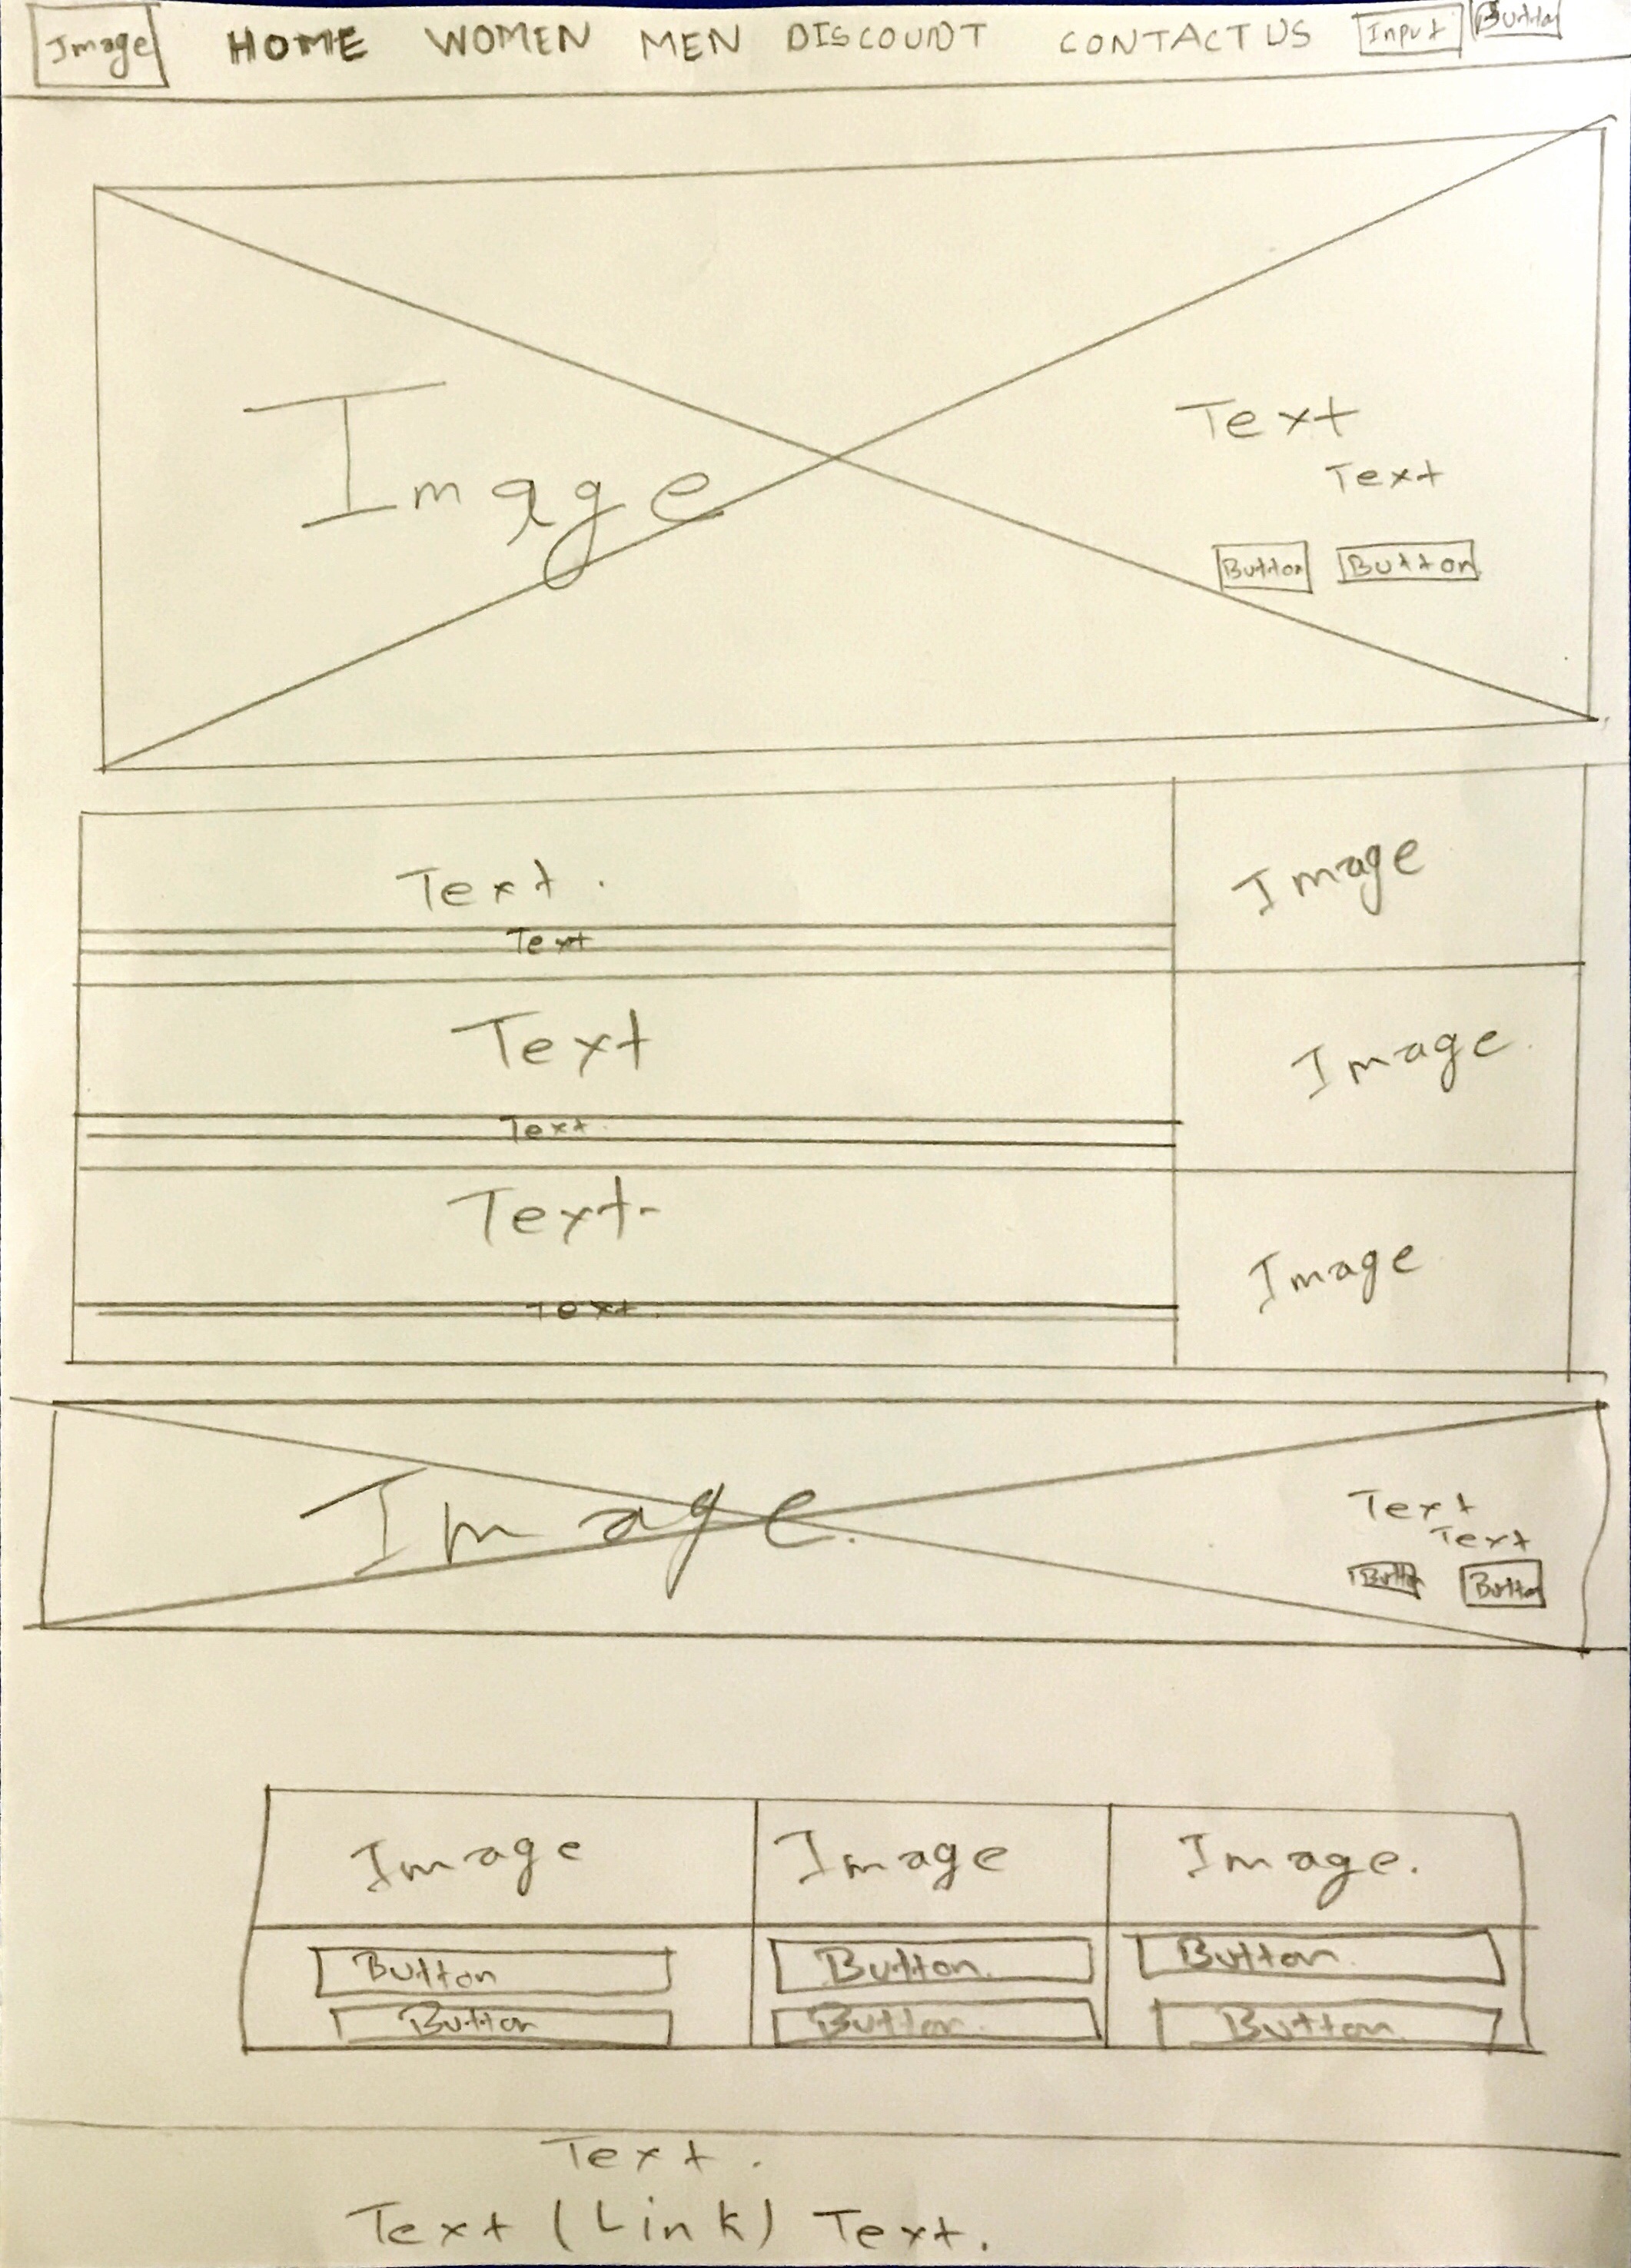 Image HOME WOMEN MEN DISCOUNT CONTACT US Input Button
Image
Text
Text
Button Button
Text.
Text
Image
Text
Text.
Image.
Text-
Text.
Image
Image.
Text
Text
Button Button
Image Image Image.
Button Button. Button.
Button Button. Button.
Text.
Text (Link) Text.